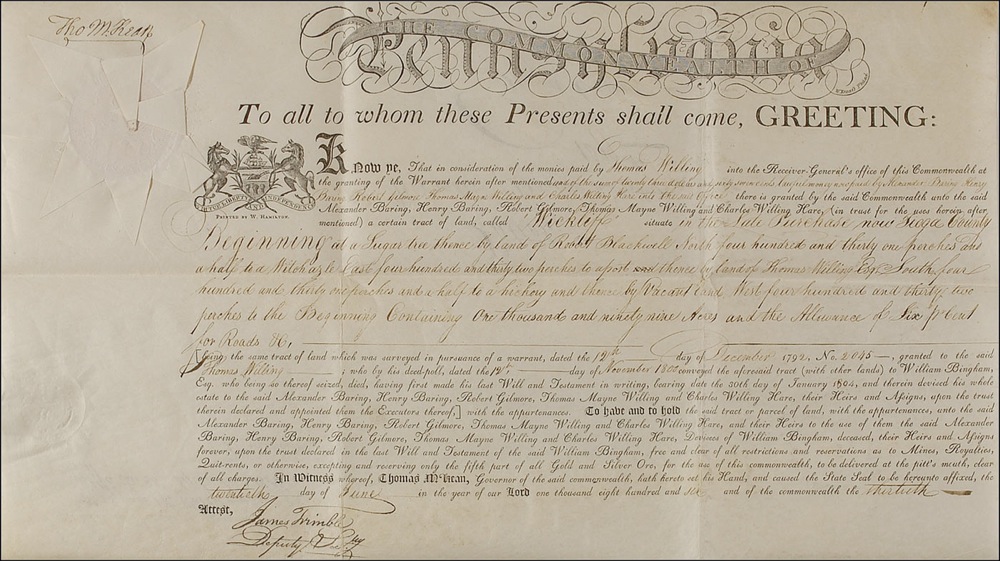 Tho M:Kean
THE COMMONWEALTH OF
Pennsylvania
To all to whom these Presents shall come, GREETING:
VIRTUE LIBERTY AND INDEPENDENCE
PRINTED BY W. HAMILTON.
Know ye, That in consideration of the monies paid by Thomas Willing into the Receiver-General's office of this Commonwealth at
the granting of the Warrant herein after mentioned, and of the sum of twenty three dollars and lawful money now paid by Alexander Baring Henry
Baring Robert Gilmore Thomas Mayne Willing and Charles Willing Hare into the said office there is granted by the said Commonwealth unto the said
Alexander Baring, Henry Baring, Robert Gilmore, Thomas Mayne Willing and Charles Willing Hare, (in trust for the uses herein after
mentioned) a certain tract of land, called Wickliff situate in the Late Purchase now Tioga County
Beginning at a Sugar tree thence by land of Robt Blackwell North four hundred and thirty one perches and
a half to a Witchazle East four hundred and thirty two perches to a post and thence by land of Thomas Willing Esqr. South four
hundred and thirty one perches and a half to a hickory and thence by Vacant Land West four hundred and thirty two
perches to the Beginning Containing One thousand and ninety nine Acres and the Allowance of Six pr Cent
for Roads &c,
[being the same tract of land which was surveyed in pursuance of a warrant, dated the 12th day of December 1792, No. 2045 —, granted to the said
Thomas Willing ; who by his deed-poll, dated the 12th day of November 1805 conveyed the aforesaid tract (with other lands) to William Bingham,
Esq. who being so thereof seized, died, having first made his last Will and Testament in writing, bearing date the 30th day of January 1804, and therein devised his whole
estate to the said Alexander Baring, Henry Baring, Robert Gilmore, Thomas Mayne Willing and Charles Willing Hare, their Heirs and Assigns, upon the trust
therein declared and appointed them the Executors thereof,] with the appurtenances. To have and to hold the said tract or parcel of land, with the appurtenances, unto the said
Alexander Baring, Henry Baring, Robert Gilmore, Thomas Mayne Willing and Charles Willing Hare, and their Heirs to the use of them the said Alexander
Baring, Henry Baring, Robert Gilmore, Thomas Mayne Willing and Charles Willing Hare, Devisees of William Bingham, deceased, their Heirs and Assigns
forever, upon the trust declared in the last Will and Testament of the said William Bingham, free and clear of all restrictions and reservations as to Mines, Royalties,
Quit-rents, or otherwise, excepting and reserving only the fifth part of all Gold and Silver Ore, for the use of this commonwealth, to be delivered at the pitt's mouth, clear
of all charges. In Witness whereof, Thomas M'Kean, Governor of the said commonwealth, hath hereto set his Hand, and caused the State Seal to be hereunto affixed, the
twentieth day of June in the year of our Lord one thousand eight hundred and six and of the commonwealth the thirtieth —
Attest,
James Trimble
Deputy Secy